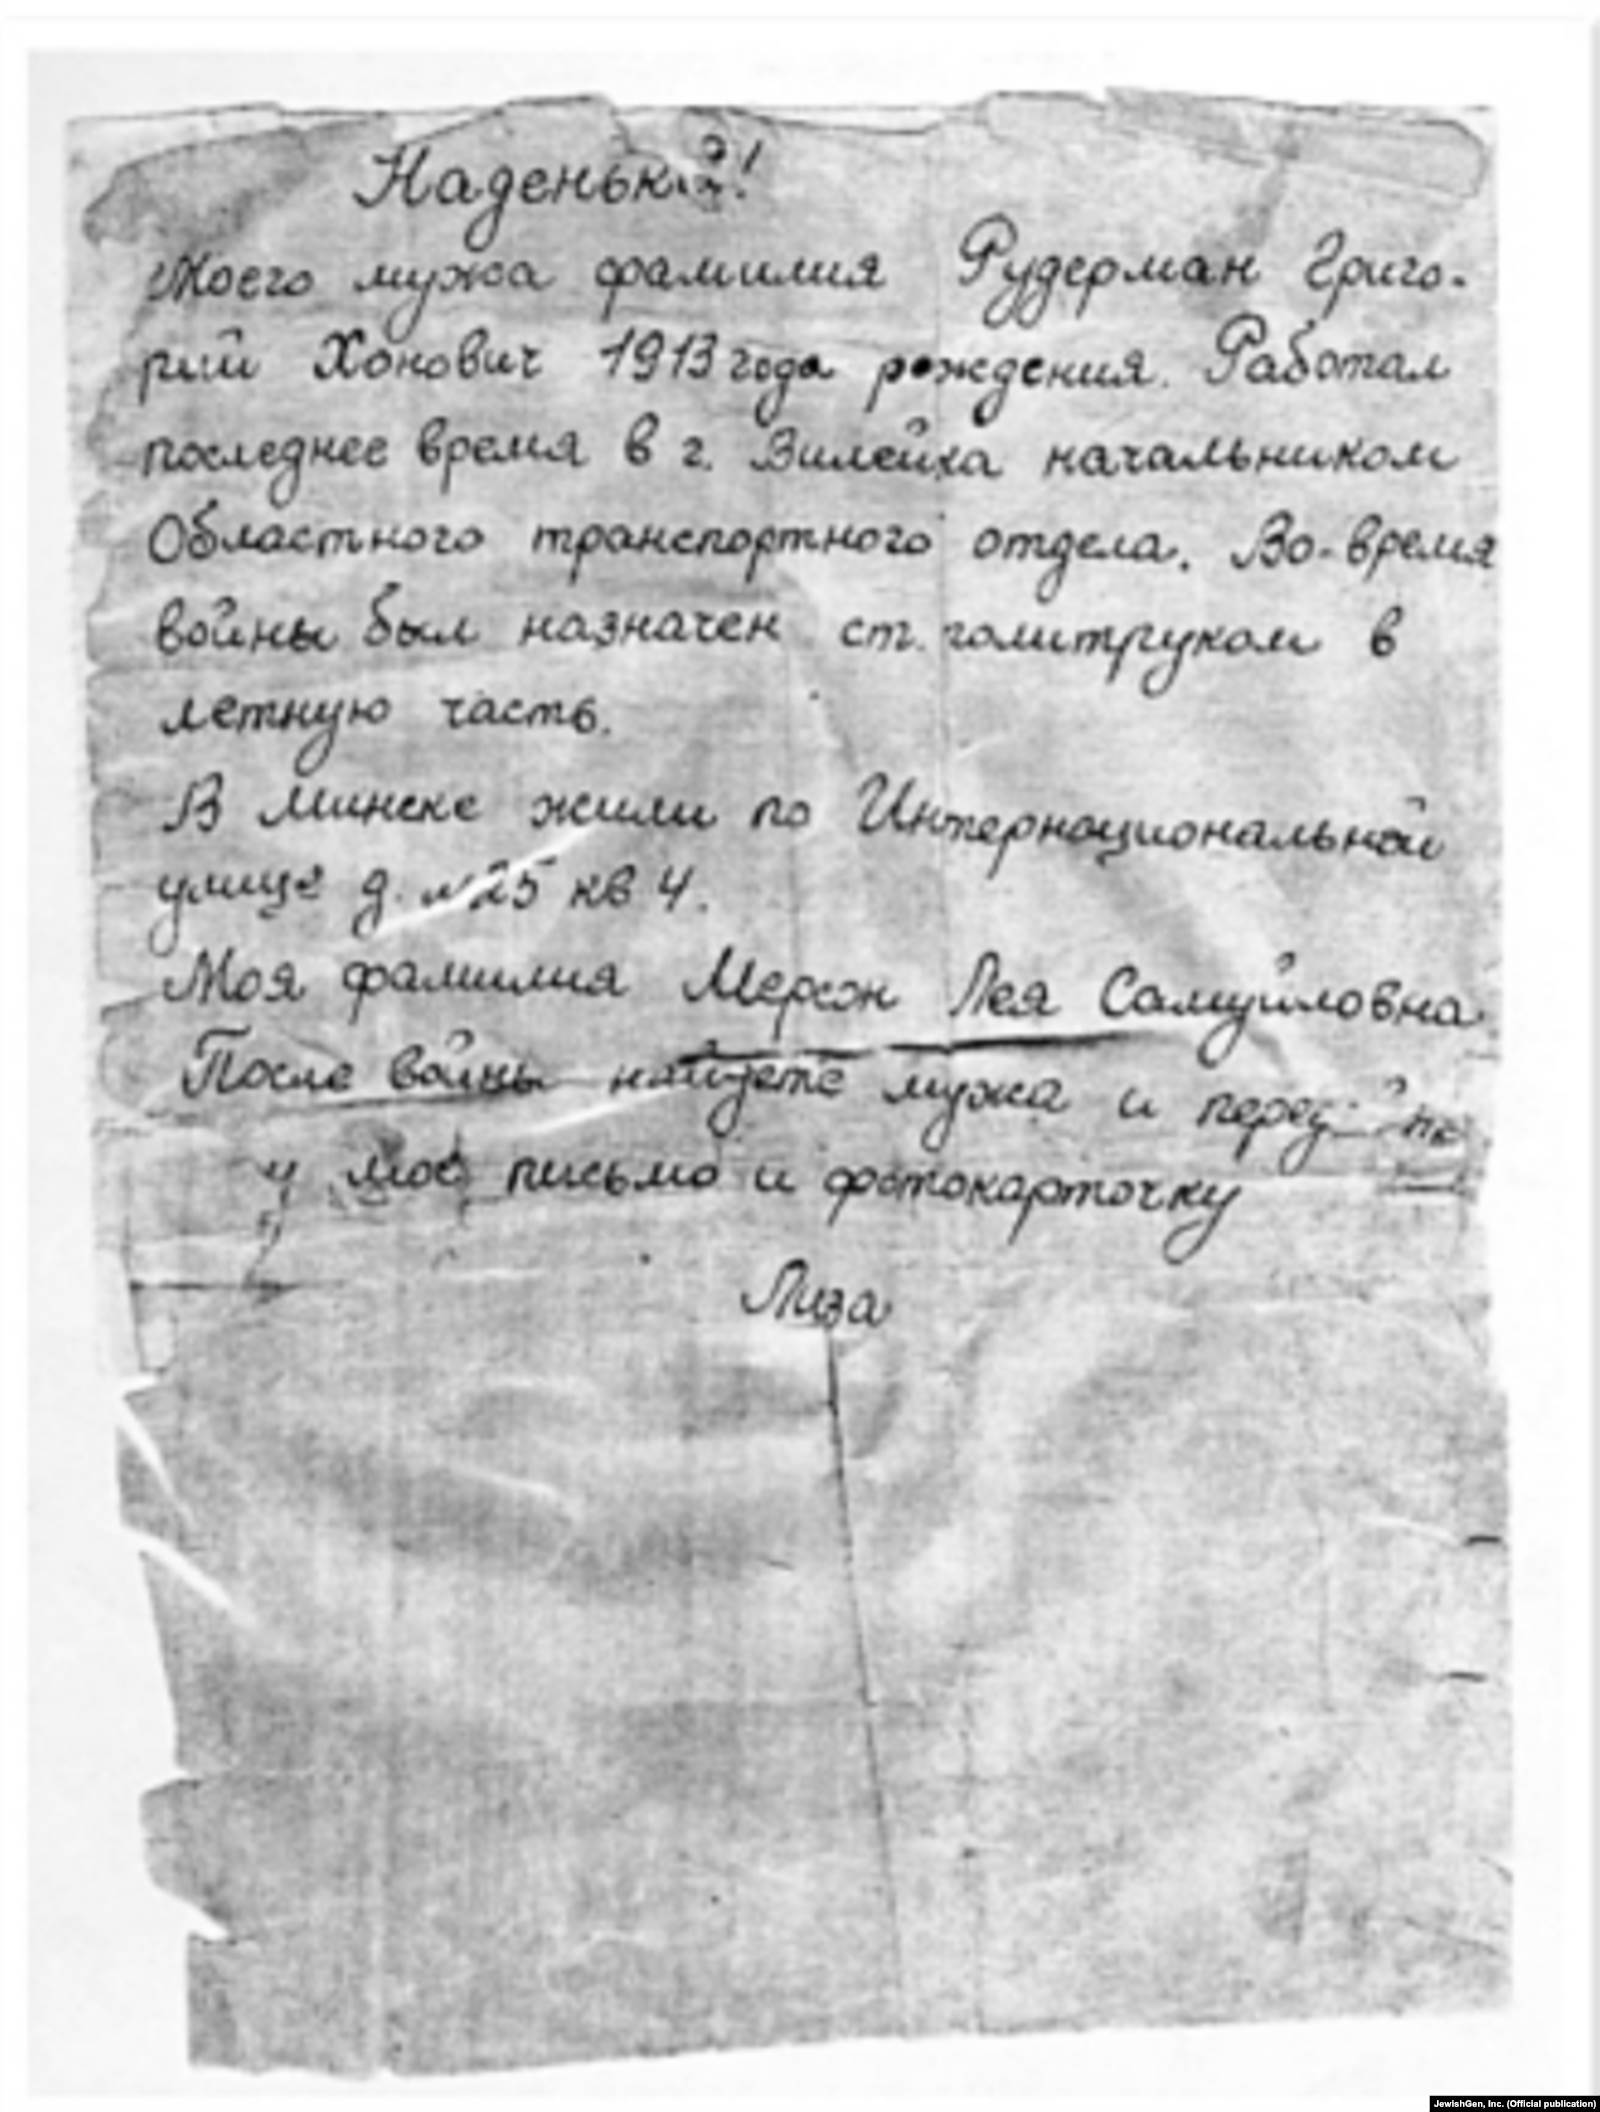 Наденька!
Моего мужа фамилия Рудерман Григо-
рий Хонович 1913 года рождения. Работал
последнее время в г. Вилейка начальником
Областного транспортного отдела. Во-время
войны был назначен ст. политруком в
летную часть.
В Минске жили по Интернациональной
улице д. №25 кв 4.
Моя фамилия Мерсон Лея Самуйловна
После войны найдете мужа и
моё письмо и фотокарточку
Лиза
JewishGen, Inc. (Official publication)